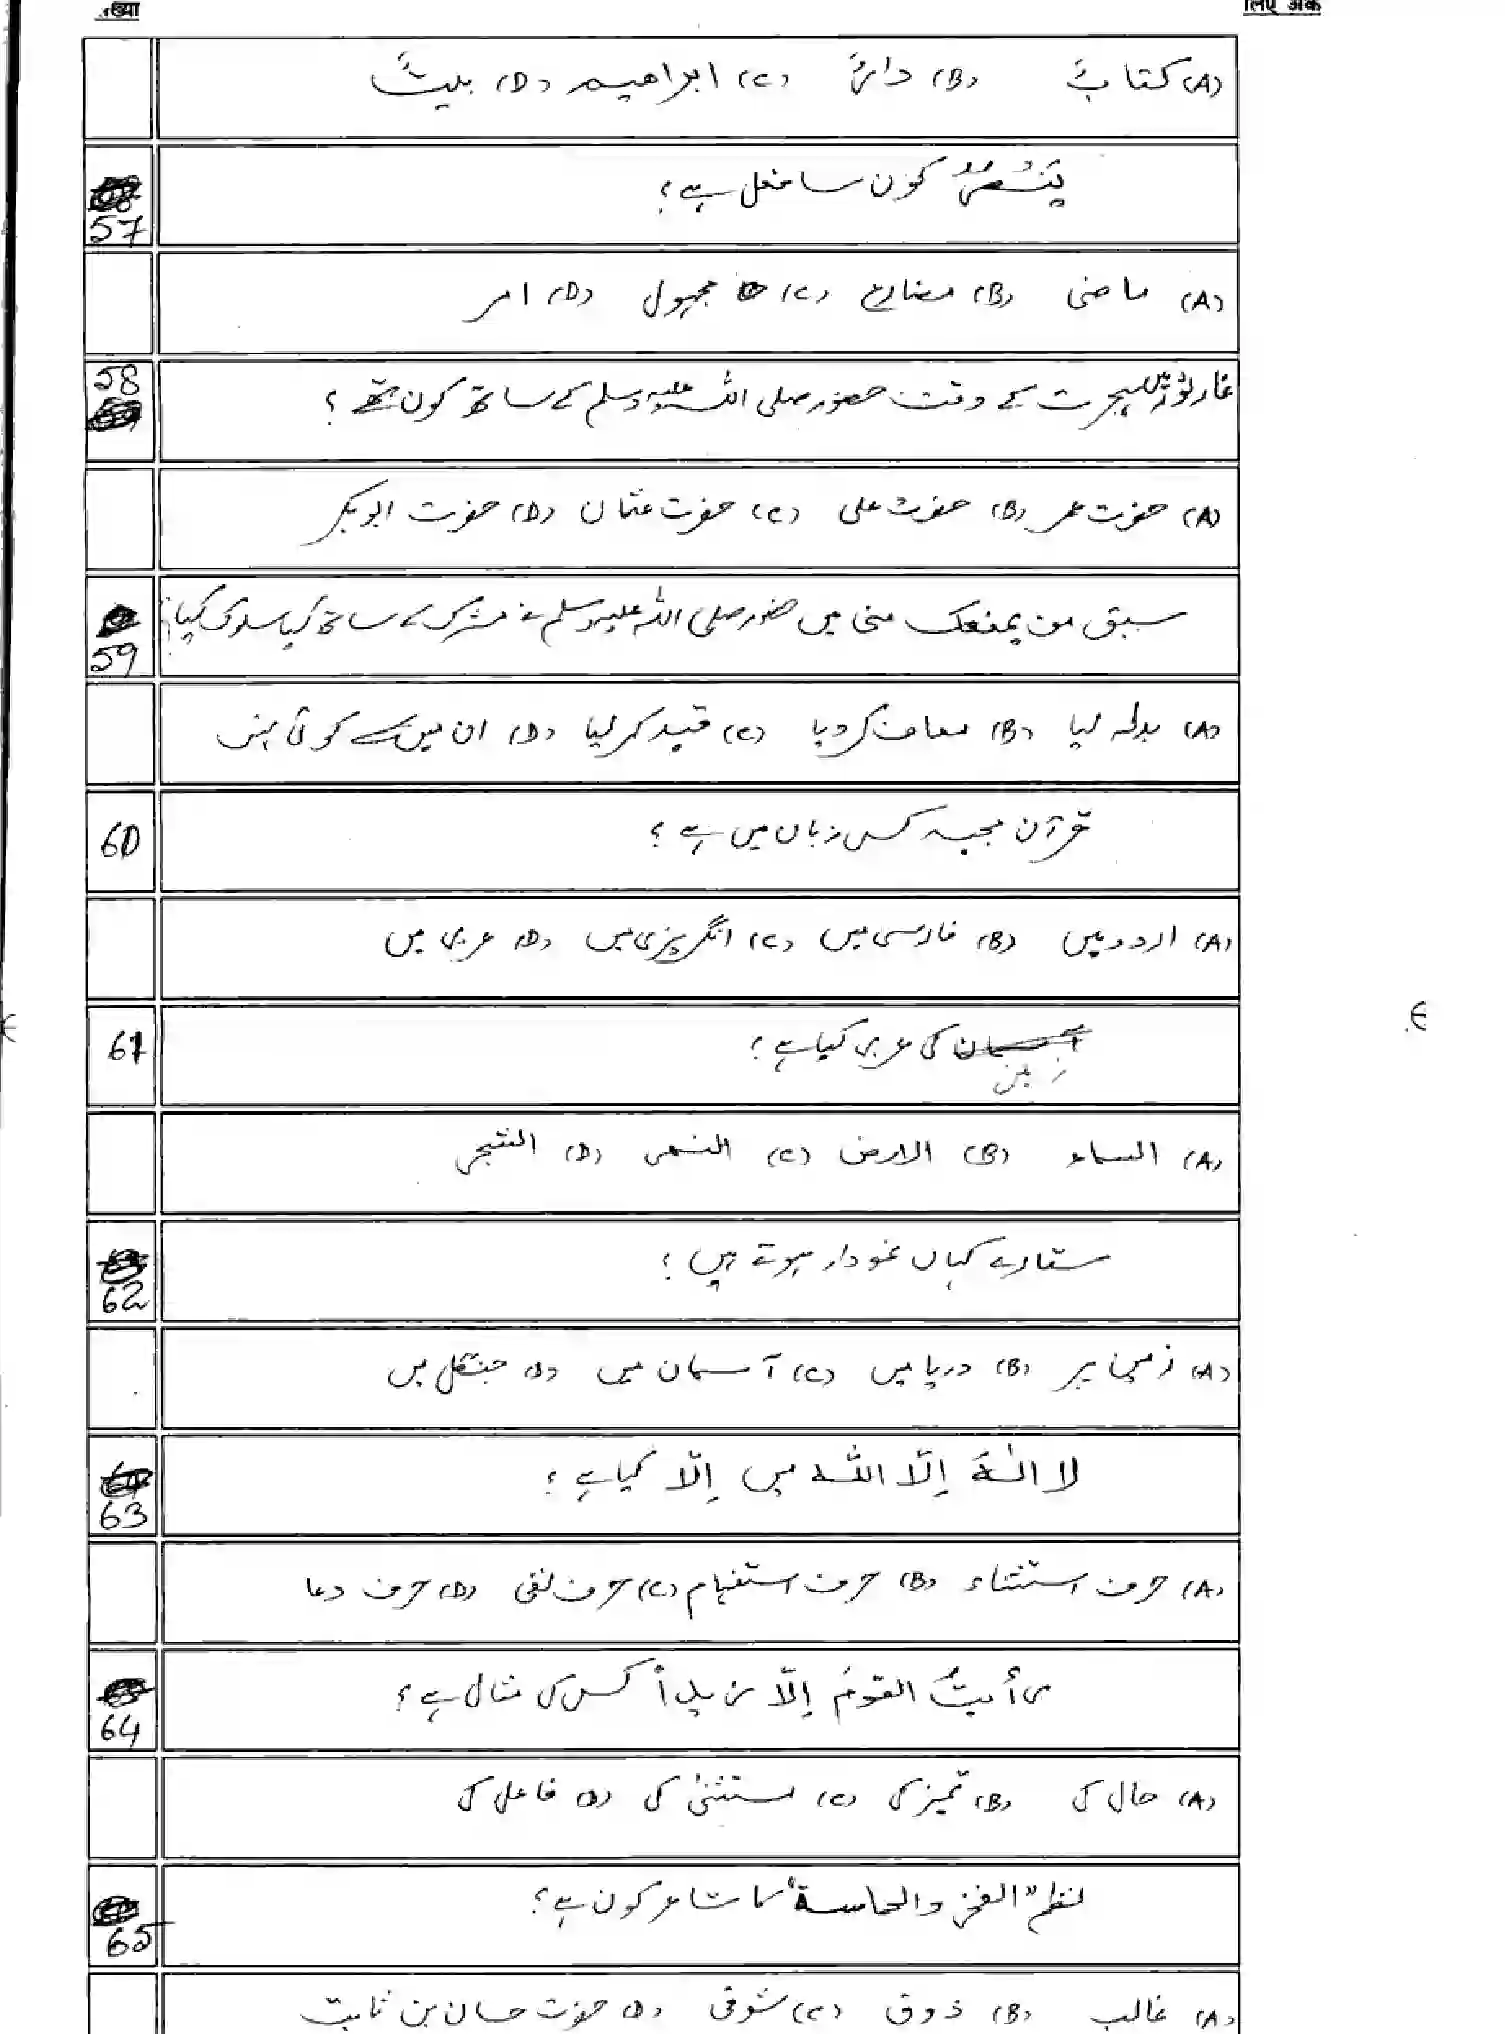 ख्या
लिए अंक
(A) کتابٌ (B) دارٌ (C) ابراھیم (D) بیتٌ
57 یَنْصُرُ کون سا فعل ہے؟
(A) ماضی (B) مضارع (C) مجہول (D) امر
58 غار ثور میں ہجرت کے وقت حضور صلی اللہ علیہ وسلم کے ساتھ کون تھے؟
(A) حضرت عمر (B) حضرت علی (C) حضرت عثمان (D) حضرت ابوبکر
59 سبق من یمنعک منی میں حضور صلی اللہ علیہ وسلم نے مشرک کے ساتھ کیا سلوک کیا؟
(A) بدلہ لیا (B) معاف کر دیا (C) قید کر لیا (D) ان میں سے کوئی نہیں
60 قرآن مجید کس زبان میں ہے؟
(A) اردو میں (B) فارسی میں (C) انگریزی میں (D) عربی میں
61 زمین کی عربی کیا ہے؟
(A) السماء (B) الارض (C) الشمس (D) الشجر
62 ستارے کہاں نمودار ہوتے ہیں؟
(A) زمین پر (B) دریا میں (C) آسمان میں (D) جنگل میں
63 لا الٰہَ اِلّا اللہ میں اِلّا کیا ہے؟
(A) حرف استثناء (B) حرف استفہام (C) حرف نفی (D) حرف دعا
64 رأیتُ القومَ اِلّا زیداً کس کی مثال ہے؟
(A) حال کی (B) تمیز کی (C) مستثنیٰ کی (D) فاعل کی
65 نظم "الفخر والحماسة" کا شاعر کون ہے؟
(A) غالب (B) ذوق (C) شوقی (D) حضرت حسان بن ثابت